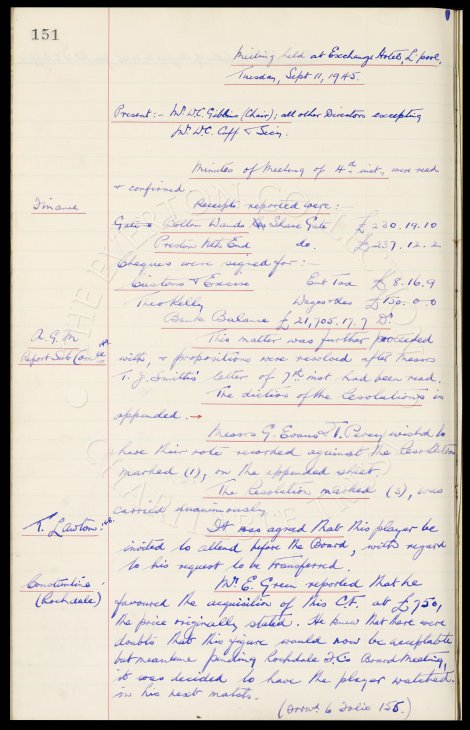 151
Meeting held at Exchange Hotel, L'pool,
Tuesday, Sept 11, 1945.
Present:- Mr. W.C. Gibbins (Chair); all other Directors excepting
Mr. W.C. Cuff & Secy.
Minutes of Meeting of 4th inst, were read
& confirmed.
Finance
Receipts reported were:-
Gate Bolton Wands Res Share Gate £230.19.10
Preston Nth End do. £237.12.2
Cheques were signed for:-
Customs & Excise Ent Tax £8.16.9
Theo Kelly Wages Res £150.0.0
Bank Balance £21,705.17.7 Dr
A.G.M
Report Sub Com
This matter was further proceeded
with, & propositions were resolved after Messrs
T. J. Smiths' letter of 7th inst had been read.
The diction of the Resolutions is
appended. →
Messrs G. Evans & T. Percy wished to
have their vote recorded against the Resolution
marked (1), on the appended sheet.
The Resolution marked (3), was
carried unanimously.
T. Lawton:
It was agreed that this player be
invited to attend before the Board, with regard
to his request to be transferred.
Constantine:
(Rochdale)
Mr. E. Green reported that he
favoured the acquisition of this C.F. at £750,
the price originally stated. He knew that there were
doubts that this figure would now be acceptable
but meantime pending Rochdale F.Cs Board Meeting,
it was decided to have the player watched
in his next match.
(Forwd. to Folio 155.)
THE EVERTON COLLECTION
CHARITABLE TRUST